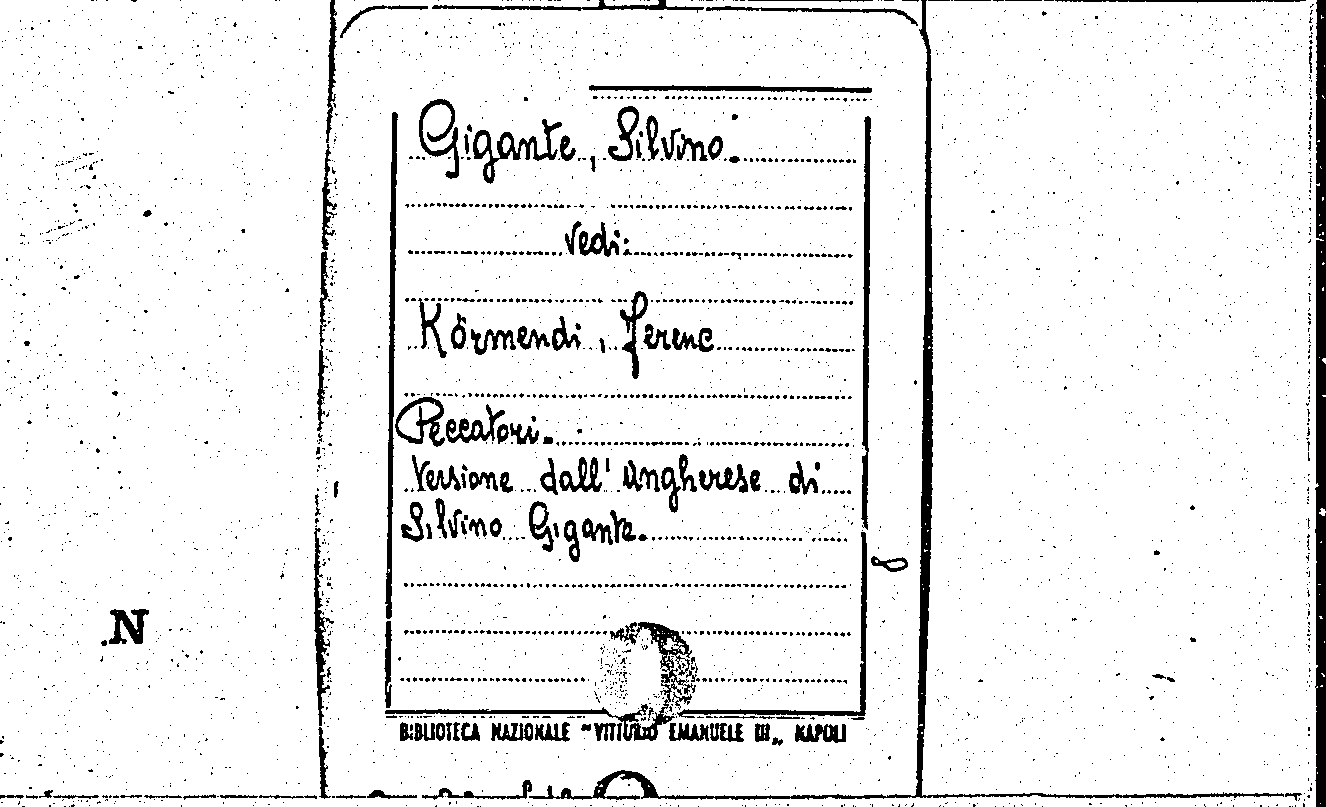 Gigante, Silvino.
vedi:
Körmendi, Ferenc
Peccatori.
Versione dall' ungherese di
Silvino Gigante.
8
N
BIBLIOTECA NAZIONALE "VITTORIO EMANUELE III" NAPOLI